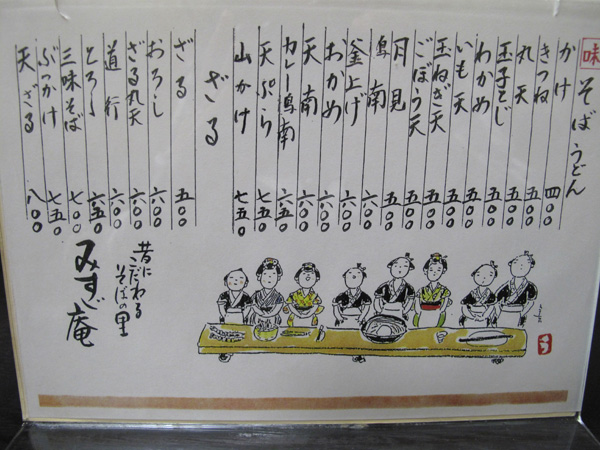 味 そば うどん
かけ 四〇〇
きつね 五〇〇
丸天 五〇〇
玉子とじ 五〇〇
わかめ 五〇〇
いも天 五〇〇
玉ねぎ天 五〇〇
ごぼう天 五〇〇
月見 五〇〇
鳥南 六〇〇
釜上げ 六〇〇
おかめ 六〇〇
天南 六〇〇
カレー鳥南 六五〇
天ぷら 七五〇
山かけ 七五〇
ざる
ざる 五〇〇
おろし 六〇〇
ざる丸天 六〇〇
道行 六〇〇
とろろ 六五〇
三味そば 七〇〇
ぶっかけ 七五〇
天ざる 八〇〇
昔に
こだわる
そばの里
みすゞ庵